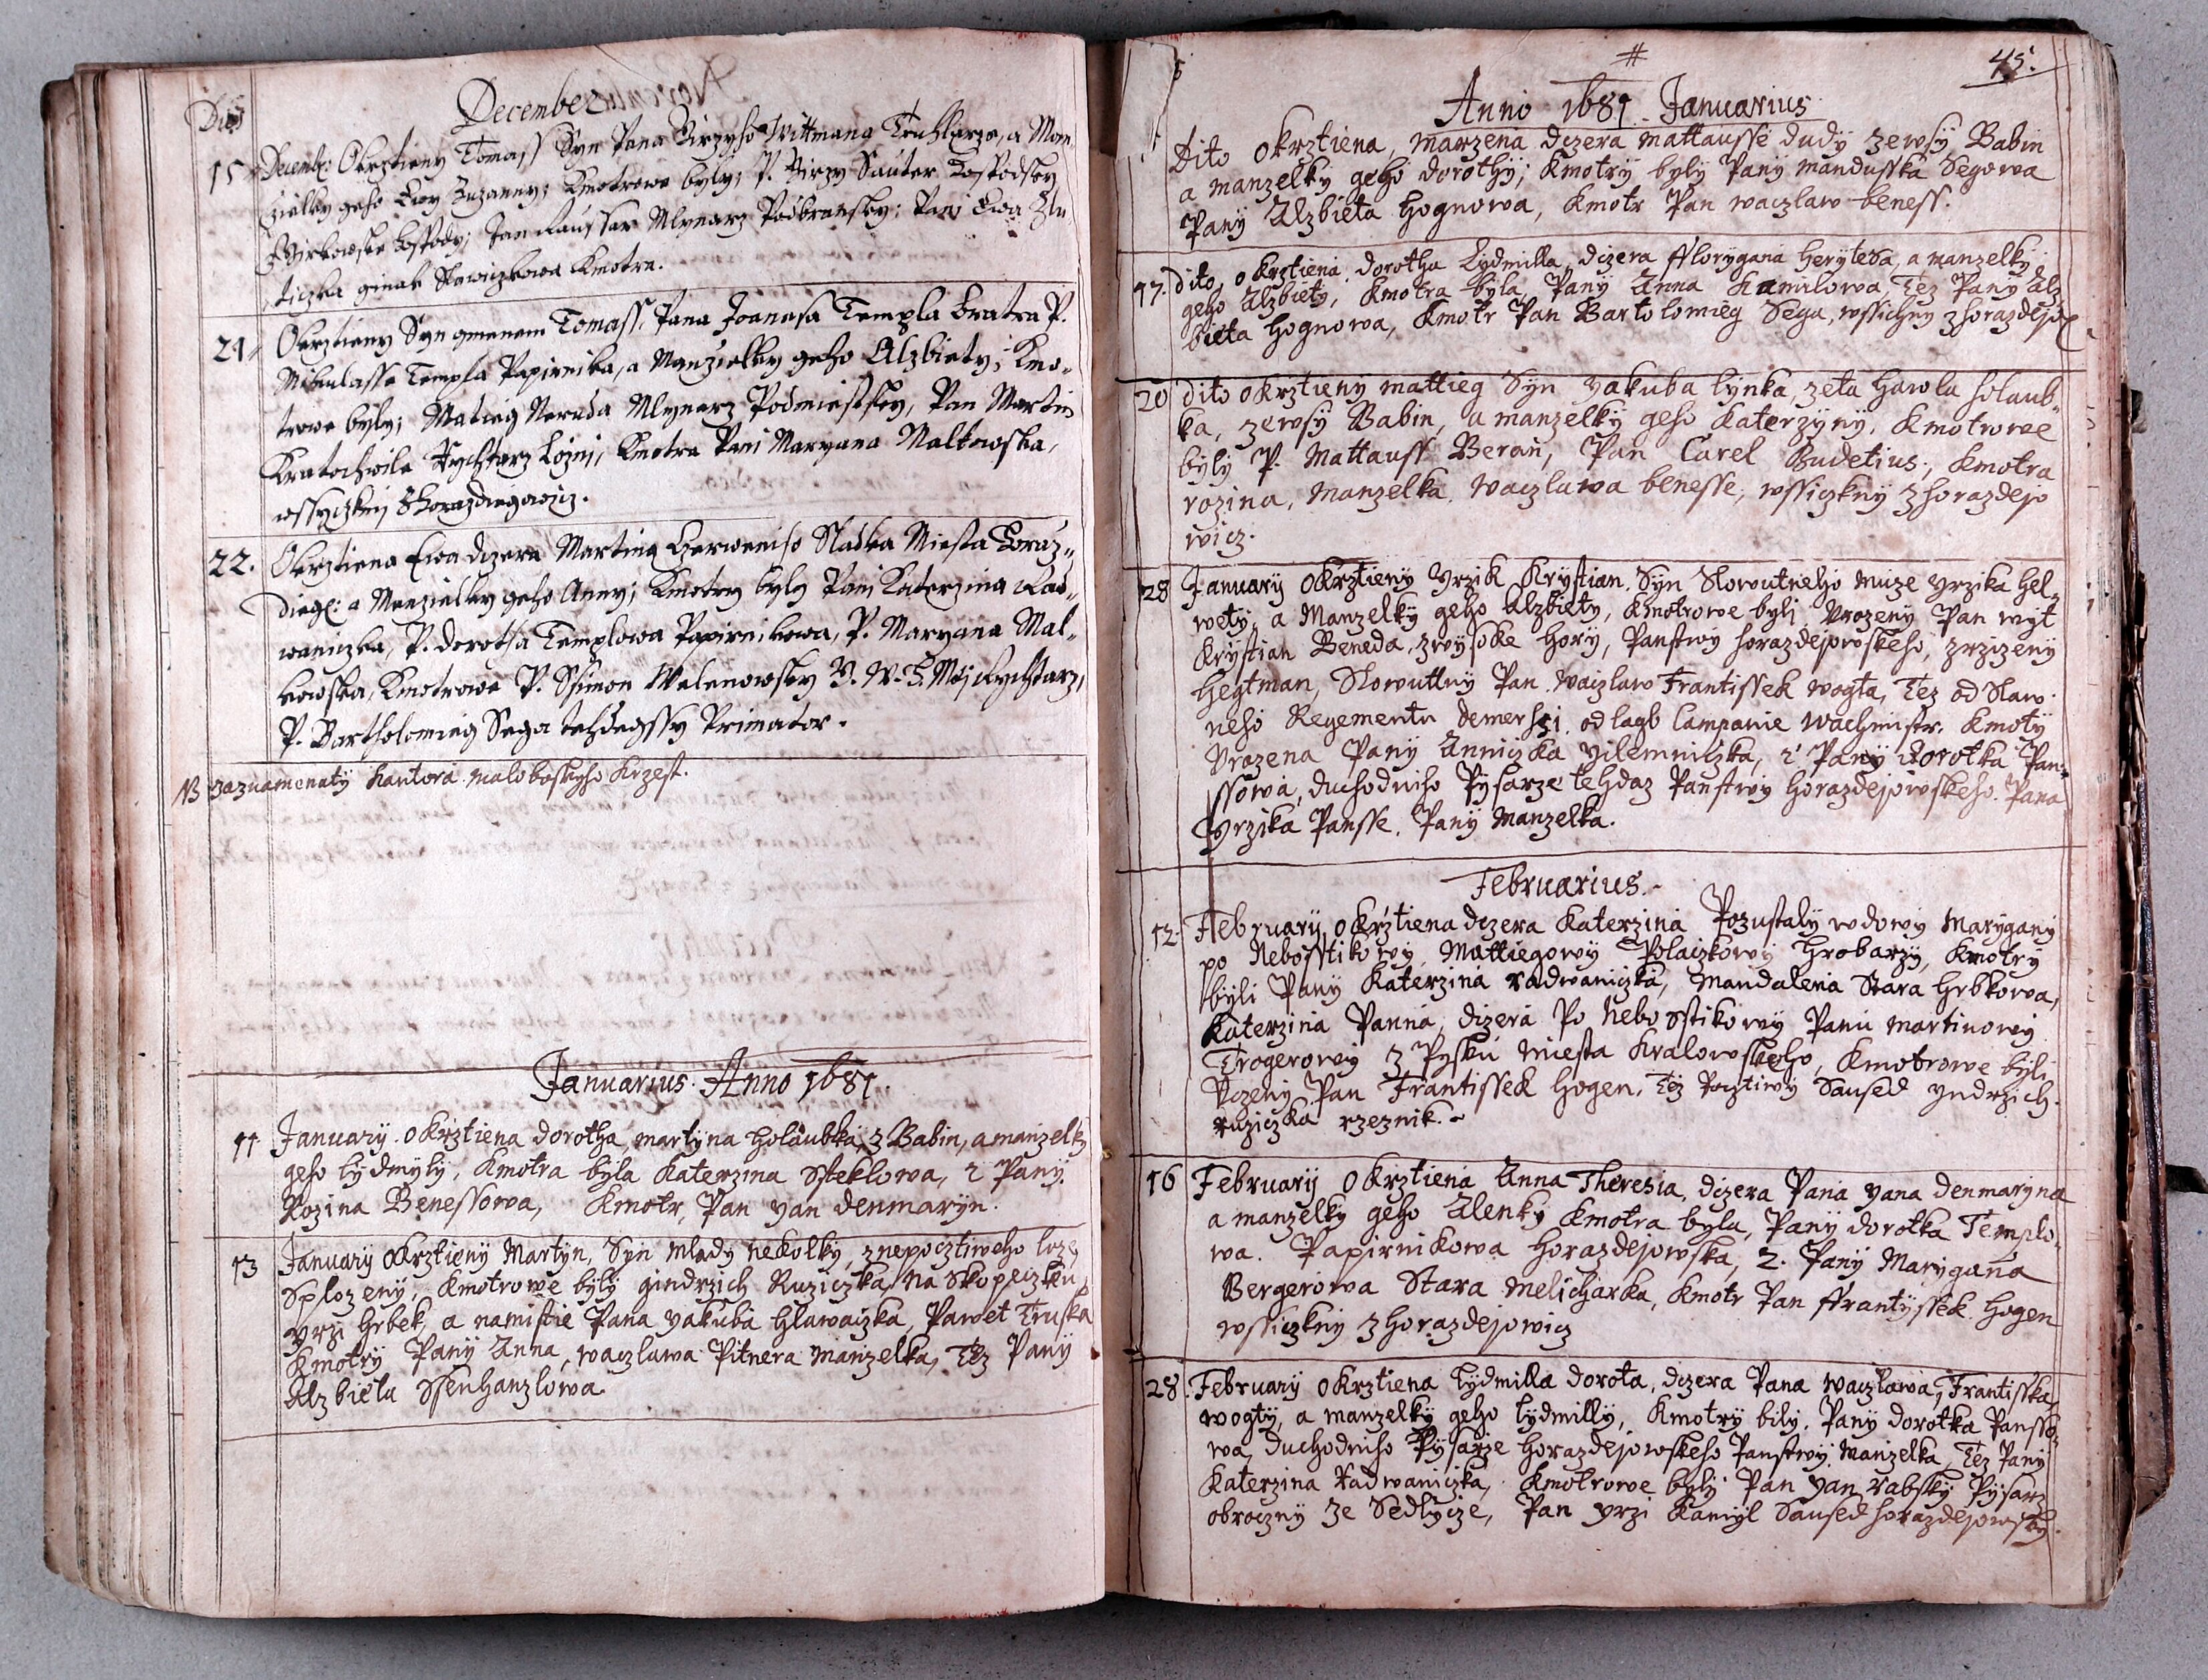 Dies December
15 Decemb: Okrztieny Tomass Syn Pana Girzyho Wittmana Truhlarze, a Man
zielky geho Ewy Zuzanny; Kmotrowe byly; P. Girzy Sauter Hospodsky
Hospody; Jan Mlynarz Podbransky; Pani Ewa
ticzka ginak Slawiczkowa Kmotra.
21. Okrztieny Syn gmenem Tomass, Pana Joanesa Templa bratra P.
Mikulasse Templa Papirnika, a Manzielky geho Alzbiety; Kmo-
trowe byly; Matieg Neruda Mlynarz Podmiestsky, Pan Martin
Kratochwile Rychtarz Lozni, Kmotra Pani Maryana Malkowska,
wssyczkni z Horazdiegowicz.
22. Okrztiena Ewa dczera Martina Czerweniho Sladka Miesta Horaz-
diegl: a Manzielky geho Anny; Kmotry byly Pani Katerzina Rad-
waniczka, P. dorotha Templowa Papirnikowa, P. Maryana Mal-
kowska, Kmotrowe P. Ssimon Welenowsky Rychtarz,
P. Bartholomieg Sega tehdegssy Primator.
NB zaznamenaty kantora maloboskyho krzest.
Januarius. Anno 1681.
11 January. okrztiena dorotha, martyna holaubka, z Babin, a manzelky
geho lydmyly, Kmotra byla Katerzina Ssteklowa, 2 Pany
Rozina Benessowa, Kmotr, Pan yan denmaryn.
13 January okrztieny Martyn, Syn mlady nekolky, znepocztiweho loze
Splozeny, Kmotrowe byly gindrzich Ruziczka, Na Skopeczku
yrzi hrbek, a namistie Pana yakuba hlawaczka, Pawel Truska
Kmotry Pany Anna, waczlawa Pitnera manzelka, Tez Pany
Alzbieta Ssenhanzlowa.
#
45.
Anno 1681. Januarius.
Dito okrztiena, marzena dczera mattausse dudy zewsy Babin
a manzelky geho dorothy; Kmotry byly Pany mandusska Segowa
Pany Alzbieta hognowa, Kmotr Pan waczlaw beness.
17. dito, okrztiena dorotha Lydmilla, dczera fflorygana herytesa, a manzelky
geho Alzbiety, kmotra byla, Pany Anna Kamilowa, Tez Pany Alz
bieta hognowa, Kmotr Pan Bartolomieg Sega, wssichny zhorazdejo
20 dito okrztieny mattieg Syn yakuba lynka, zeta hawla holaub-
ka, zewsy Babin, a manzelky geho Katerzyny, Kmotrowe
byly P. Mattauss Beran, Pan Carel Budetius, Kmotra
rozina, manzelka waczlawa benesse, wssiczkny zhorazdejo
wicz.
28 January okrztieny yrzik Krystian, Syn Slowutneho muze yrzika hel-
wety, a Manzelky geho Alzbiety, kmotrowe byli Vrozeny Pan wyt
Krystian Beneda, zwysoke hory, Panstwy horazdejowskeho, zrzizeny
hegtman, Slowuttny Pan waczlaw Frantissek wogta, Tez od Slaw
neho Regementu demerhsi od lagb Campanie wachmistr. Kmoty
Vrozena Pany Anniczka yilemniczka, 2 Pany dorotka Pan-
ssowa, duchodniho Pysarze tehdaz Panstwy horazdejowskeho. Pana
yrzika Pansse, Pany Manzelka.
Februarius.
12. February, okrztiena dczera Katerzina Pozustaly wdowy Marygany
po Nebosstikowy, Mattiegowy Polaczkowy hrobarzy, Kmotry
byli Pany Katerzina radwaniczka, mandalena Stara hrbkowa,
Katerzina Panna, dczera Po nebosstikowy Panu martinowy
Trogerowy z Pysku miesta kralowskeho, Kmotrowe byli
Vczeny Pan Frantissek hogen, Tez Poctiwy Saused yndrzich
ruziczka rzeznik.
16 February okrztiena Anna Theresia, dczera Pana yana denmaryna
a manzelky geho Alenky Kmotra byla, Pany dorotka Templo-
wa. Papirnikowa horazdejowska, 2. Pany Marygana
Bergerowa Stara melicharka, Kmotr Pan ffrantyssek hogen
wssiczkny z horazdejowicz
28. February okrztiena Lydmilla dorota, dczera Pana waczlawa, Frantisska
wogty, a manzelky geho lydmilly, Kmotry bily, Pany dorotka Pansso-
wa, duchodniho Pysarze horazdejowskeho Panstwy. manzelka, Tez Pany
Katerzina Radwaniczka, Kmotrowe byly Pan yan rabsky Pysarz
obroczny ze Sedlycze, Pan yrzi Kamyl Saused horazdejowsky.